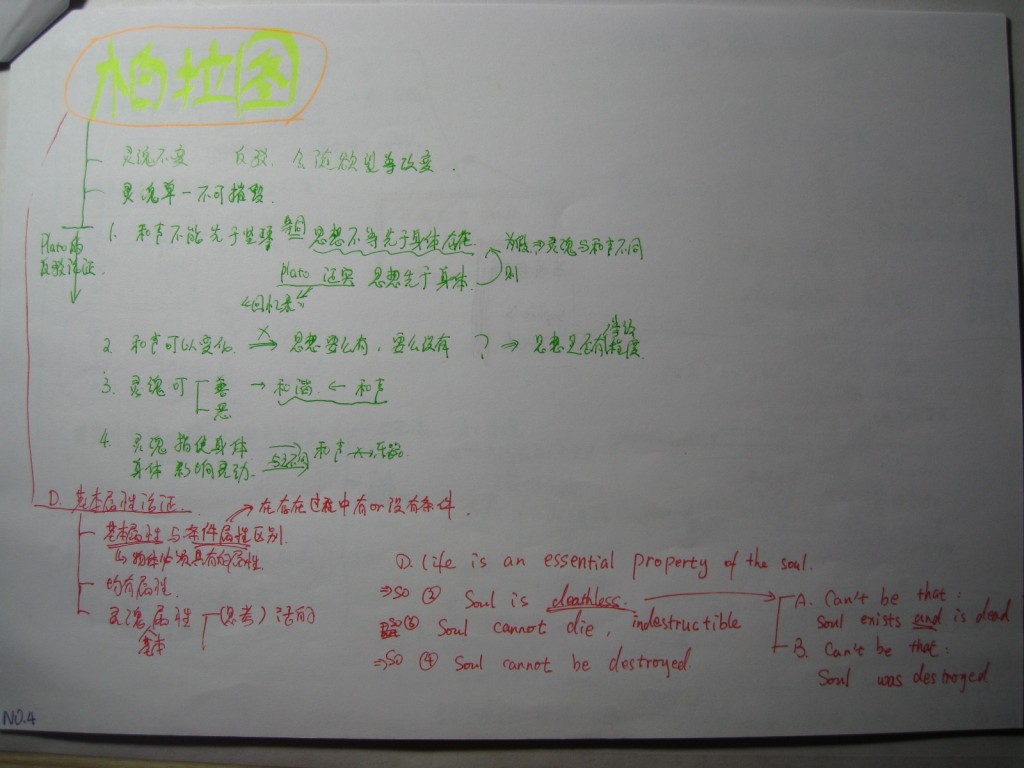 柏拉图
灵魂不变 反驳. 会随欲望等改变.
灵魂单一不可摧毁.
Plato的
反驳论证.
1. 和声不能先于竖琴 等同 思想不等先于身体存在. 为假⇒灵魂与和声不同
Plato 证实 思想先于身体. 则
回忆
2. 和声可以变化. X⇒ 思想要么有, 要么没有 ? ⇒ 思想是否有程度.
等级
3. 灵魂可 善 → 和谐. ← 和声
恶
4. 灵魂指使身体
身体影响灵动. 和声 X→
D. 基本属性论证. 在存在过程中有or没有条件.
基本属性与条件属性区别.
物体必须具有的属性.
均有属性.
灵魂属性 (思考) 活的
基本
①. Life is an essential property of the soul.
⇒ so ② Soul is deathless. → A. Can't be that:
Soul exists and is dead
so ③ Soul cannot die, indestructible
B. Can't be that:
⇒ So ④ Soul cannot be destroyed.
Soul was destroyed
NO.4